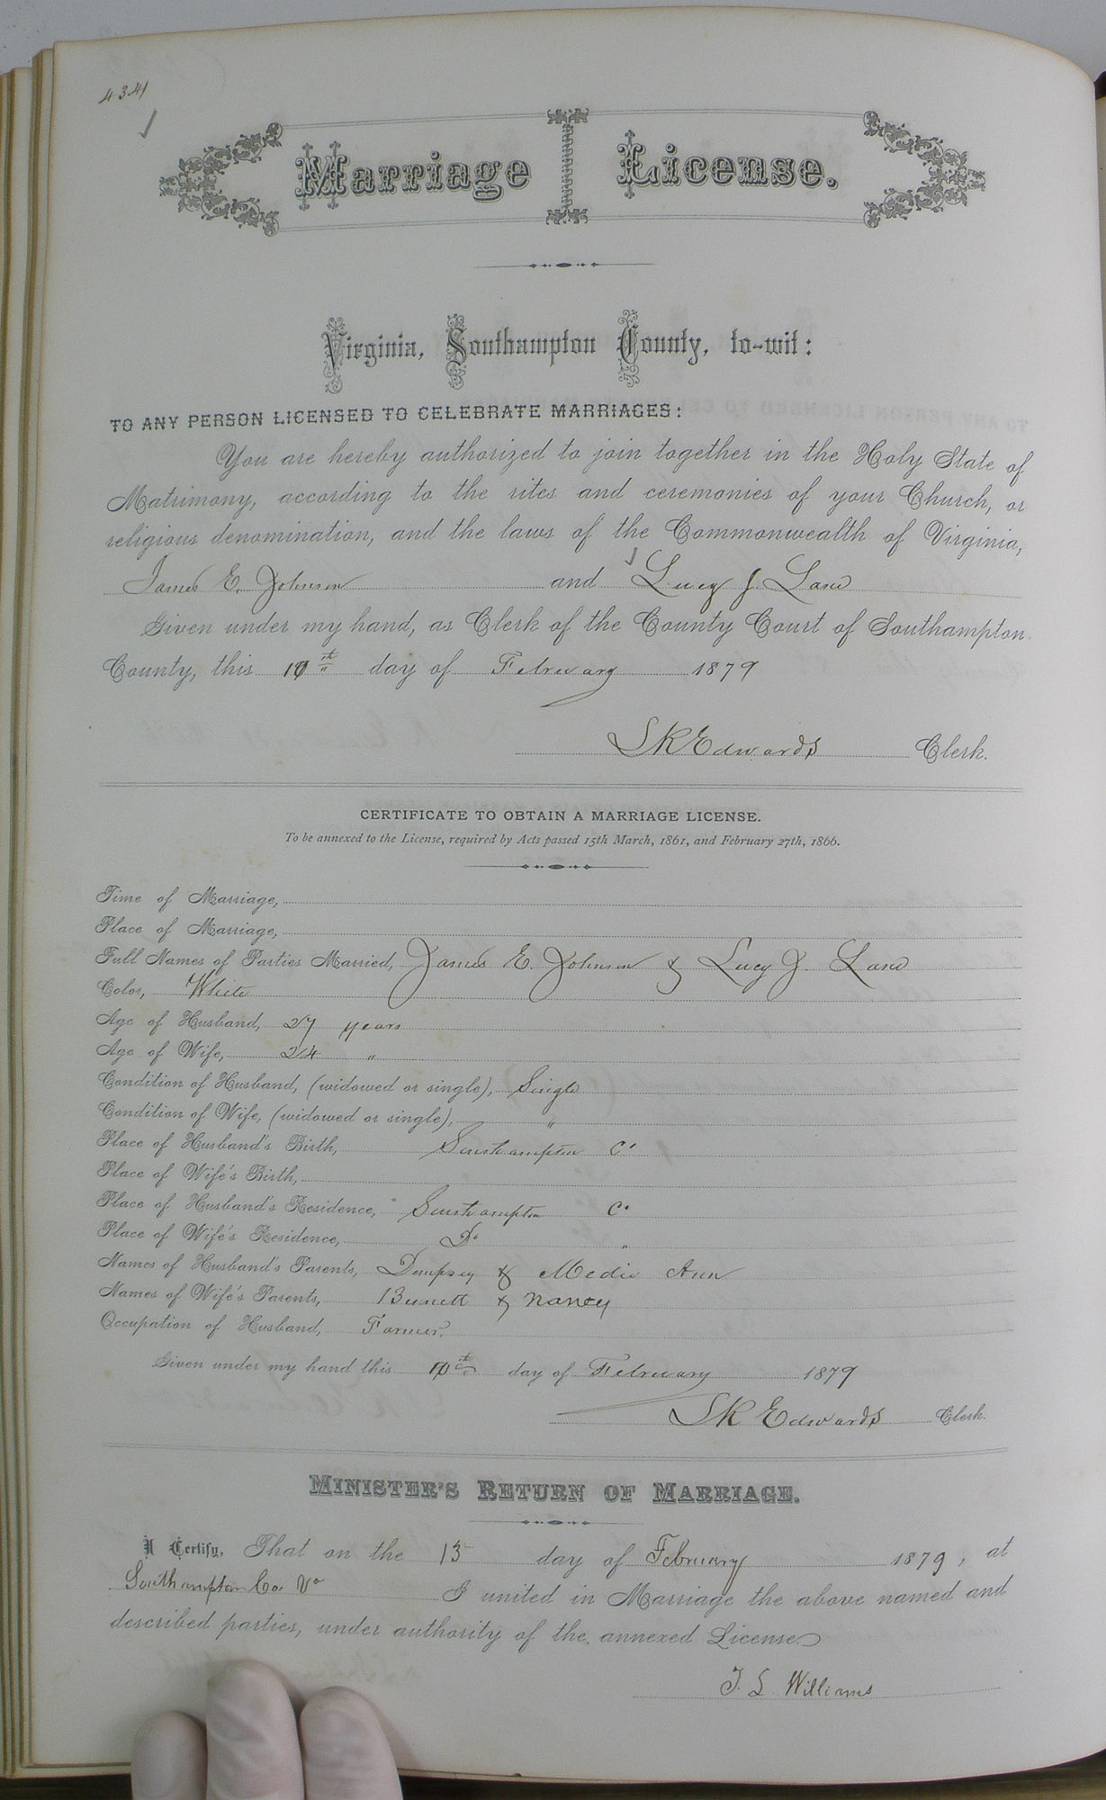 434
Marriage License.
Virginia, Southampton County, to-wit:
TO ANY PERSON LICENSED TO CELEBRATE MARRIAGES:
You are hereby authorized to join together in the Holy State of
Matrimony, according to the rites and ceremonies of your Church, or
religious denomination, and the laws of the Commonwealth of Virginia,
James E. Johnson and Lucy J. Lane
Given under my hand, as Clerk of the County Court of Southampton
County, this 10th day of February 1879
S K Edwards Clerk.
CERTIFICATE TO OBTAIN A MARRIAGE LICENSE.
To be annexed to the License, required by Acts passed 15th March, 1861, and February 27th, 1866.
Time of Marriage,
Place of Marriage,
Full Names of Parties Married, James E. Johnson & Lucy J. Lane
Color, White
Age of Husband, 27 years
Age of Wife, 24 "
Condition of Husband, (widowed or single), Single
Condition of Wife, (widowed or single), "
Place of Husband's Birth, Southampton Co
Place of Wife's Birth,
Place of Husband's Residence, Southampton Co
Place of Wife's Residence, Do "
Names of Husband's Parents, Dempsey & Medie Ann
Names of Wife's Parents, Burnett & Nancy
Occupation of Husband, Farmer.
Given under my hand this 10th day of February 1879
S K Edwards Clerk.
MINISTER'S RETURN OF MARRIAGE.
I Certify, That on the 13 day of February 1879, at
Southampton Co. Va I united in Marriage the above named and
described parties, under authority of the annexed License.
J. L. Williams